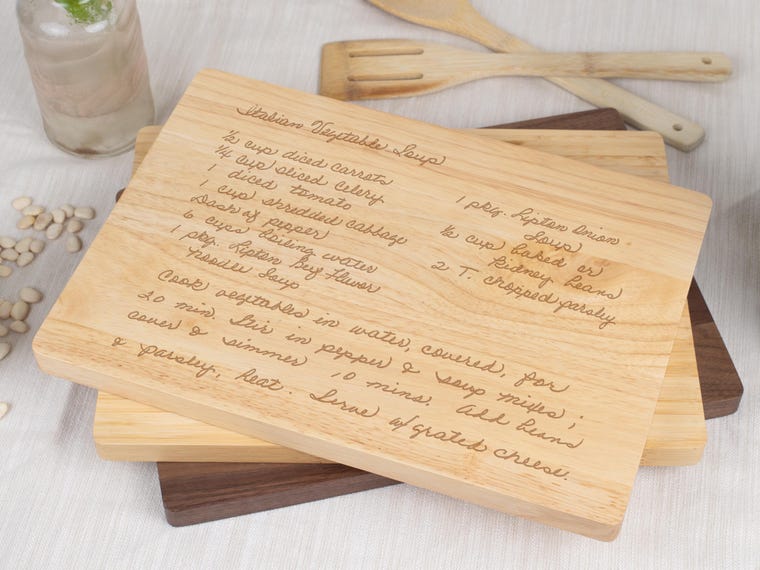 Italian Vegetable Soup
½ cup diced carrots
¼ cup sliced celery
1 diced tomato
1 cup shredded cabbage
Dash of pepper
6 cups boiling water
1 pkg. Lipton Beef Flavor
Noodle Soup
1 pkg. Lipton Onion
Soup
½ cup baked or
kidney beans
2 T. chopped parsley
Cook vegetables in water, covered, for
20 min. Stir in pepper & soup mixes;
cover & simmer 10 mins. Add beans
& parsley, heat. Serve w/ grated cheese.